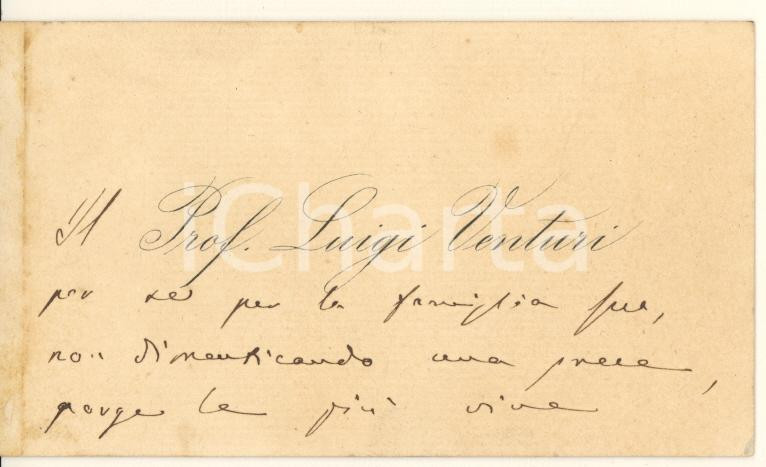 Il Prof. Luigi Venturi
per sé per la famiglia sua,
non dimenticando una prece,
porge le più vive
iCharta